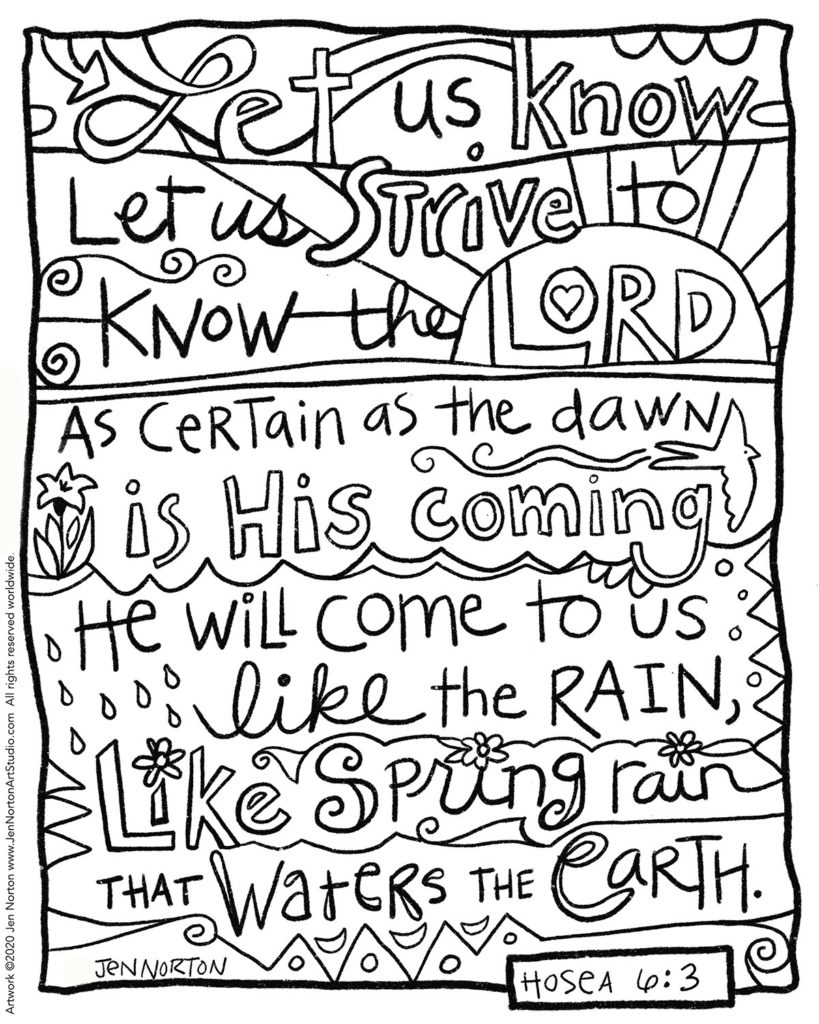 Let us Know
Let us STRIVE to
KNOW the LORD
As CeRTain as the dawN
is His coming
He will come to us
like the RAIN,
Like Spring rain
THAT WateRS THE eaRTH.
JeN NORTON
HOSeA 6:3
Artwork ©2020 Jen Norton www.JenNortonArtStudio.com All rights reserved worldwide.